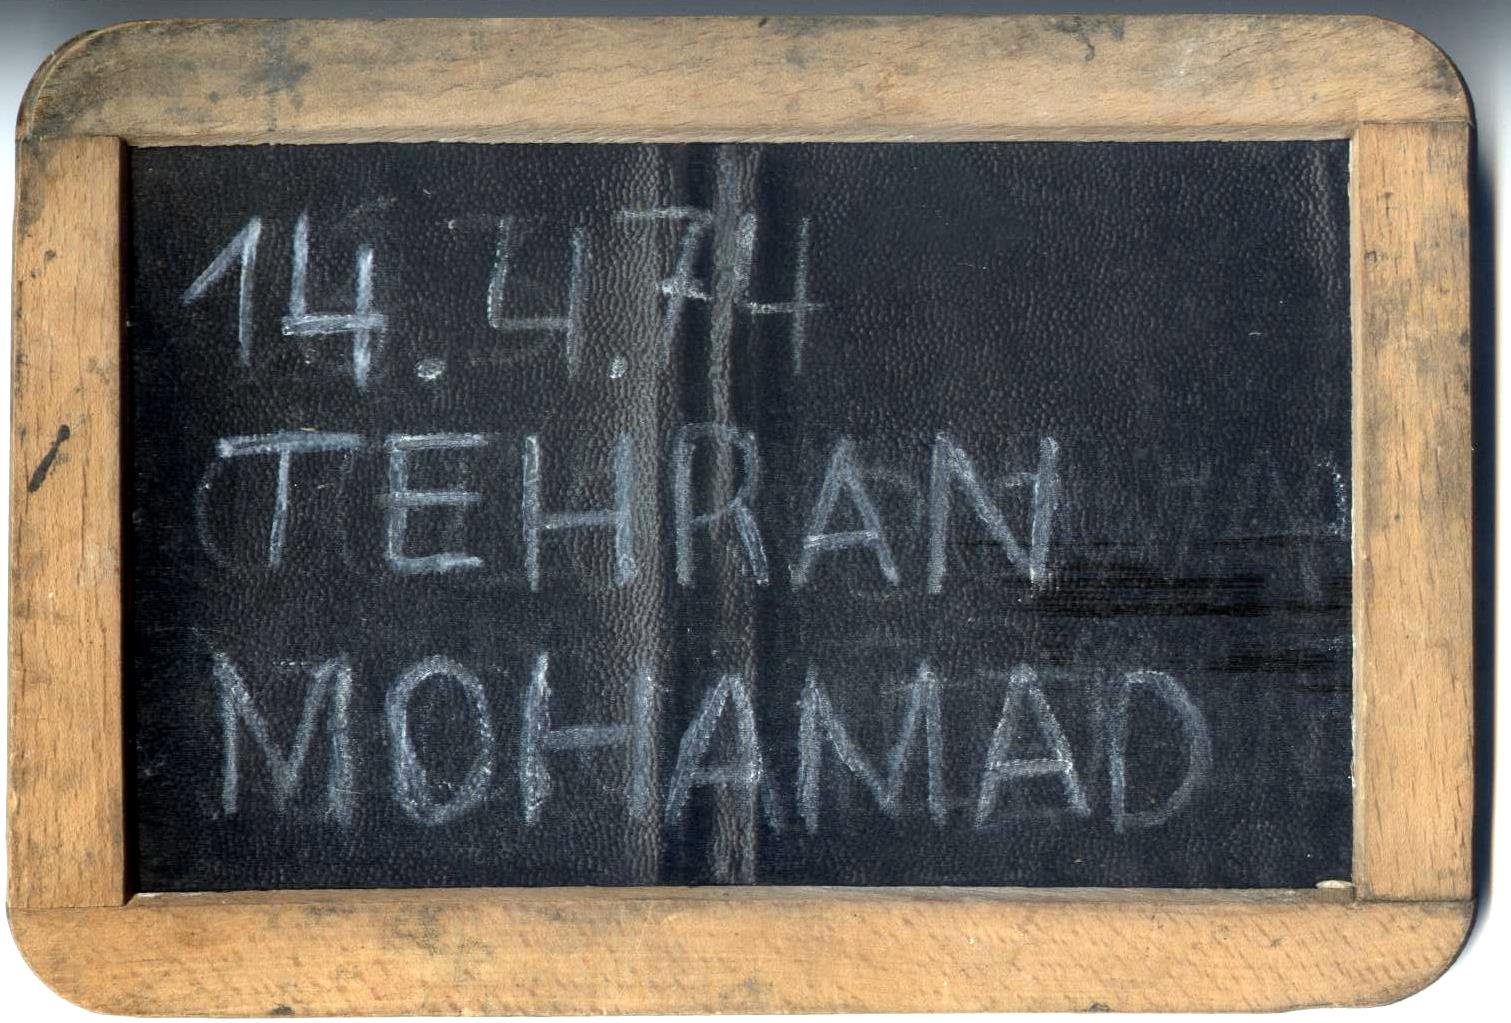 14.4.74
TEHRAN
MOHAMAD